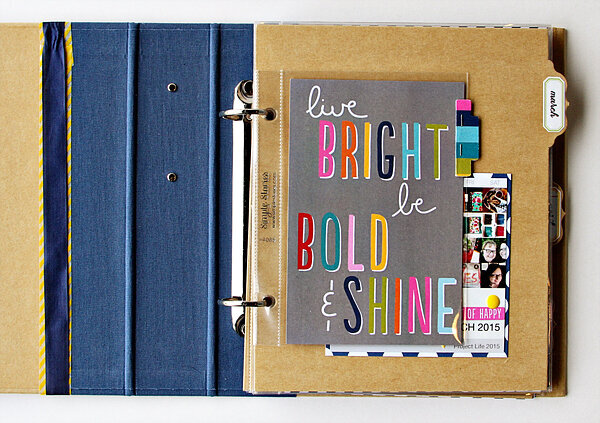 live
BRIGHT
be
BOLD
&
SHINE
march
Simple Stories
SAT
OF HAPPY
CH 2015
Project Life 2015